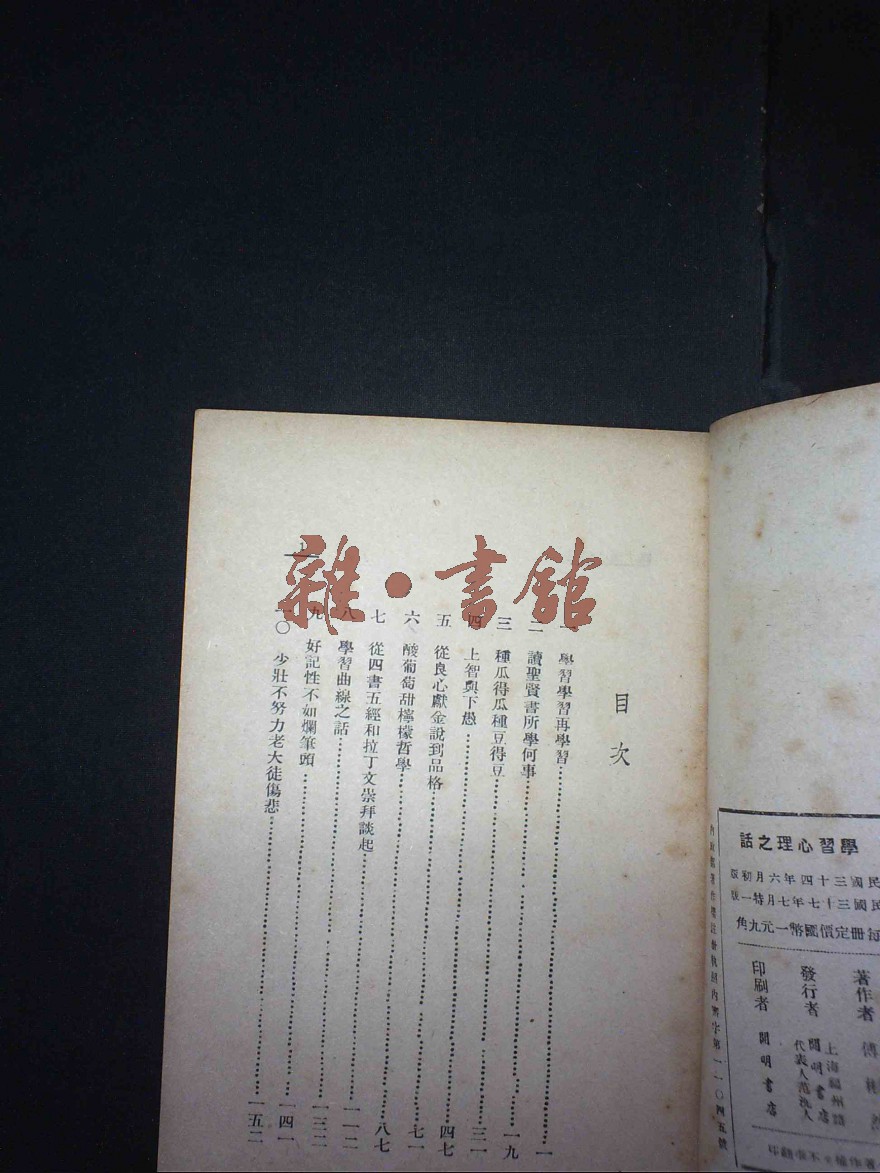 雜·書館
目次
一 學習學習再學習 一
二 讀聖賢書所學何事 一九
三 種瓜得瓜種豆得豆 三一
四 上智與下愚 四七
五 從良心獻金說到品格 七一
六 酸葡萄甜檸檬哲學 八七
七 從四書五經和拉丁文崇拜談起 一一二
八 學習曲線之話 一三二
九 好記性不如爛筆頭 一四一
一〇 少壯不努力老大徒傷悲 一五二
學習心理之話
民國三十四年六月初版
民國三十七年七月特一版
每冊定價國幣一元九角
著作者 傅彬然
發行者 開明書店
上海福州路
代表人范洗人
印刷者 開明書店